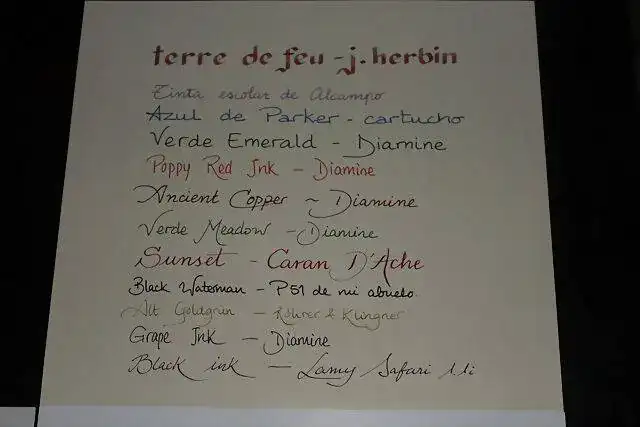 terre de feu - j. herbin
Tinta escolar de Alcampo
Azul de Parker - cartucho
Verde Emerald - Diamine
Poppy Red Ink - Diamine
Ancient Copper ~ Diamine
Verde Meadow - Diamine
Sunset - Caran D'Ache
Black Waterman - P51 de mi abuelo.
Alt Goldgrün - Rohrer & Klingner
Grape Ink - Diamine
Black ink - Lamy Safari 1.1i